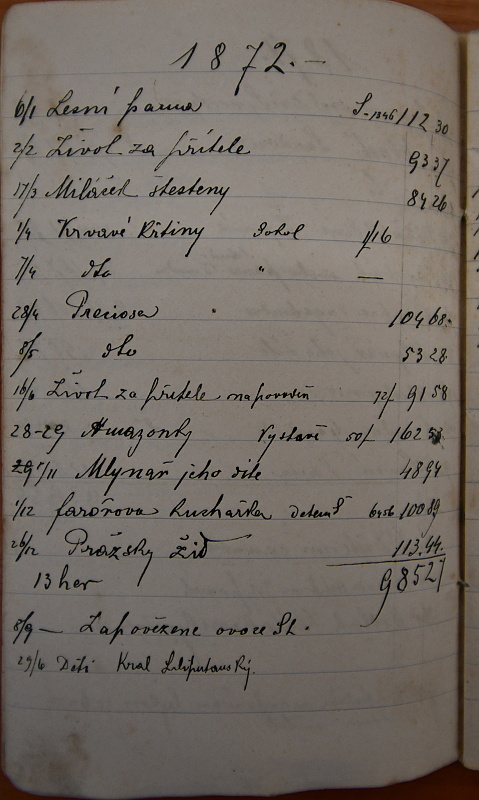 1872.—
6/1 Lesní panna S-1346 112 30
2/2 Život za přítele 93 37
17/3 Miláček štesteny 84 26
1/4 Krvavé Křtiny Sokol f/16
7/4 dto " —
28/4 Preciosa 104 68.
8/5 dto 53 28
16/6 Život za přítele na povodiň 72f 91 58
28-29 Amazonky Vystavě 50f 162
/11 Mlynař jeho dite 48 94
1/12 farářova Kuchařka 6456 100 89
26/12 Pražsky Žid 113.44.
13 her 985 27
8/9 — Zapovězene ovoce St.
29/6 Děti Kral Liliputanský.